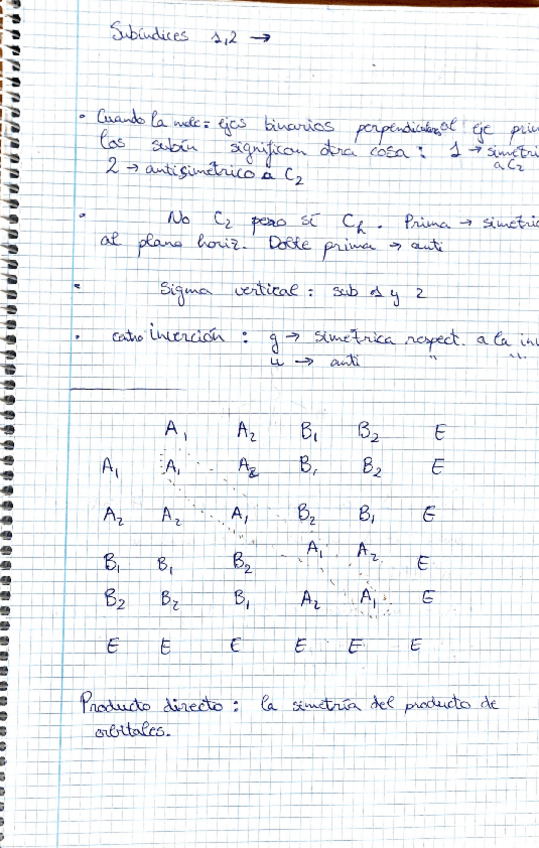 Subíndices 1,2 →
• Cuando la molec = ejes binarios perpendiculares al eje prin
los subín significan otra cosa : 1 → simétri
a C2
2 → antisimétrico a C2
• No C2 pero sí Ch . Prima → simétric
al plano horiz. Doble prima → anti
• Sigma vertical : sub 1 y 2
• inverción : g → simétrica respect. a la inv
u → anti " "
A1 A2 B1 B2 E
A1 A1 A2 B1 B2 E
A2 A2 A1 B2 B1 E
B1 B1 B2 A1 A2 E
B2 B2 B1 A2 A1 E
E E E E E E
Producto directo : la simetría del producto de
orbitales.